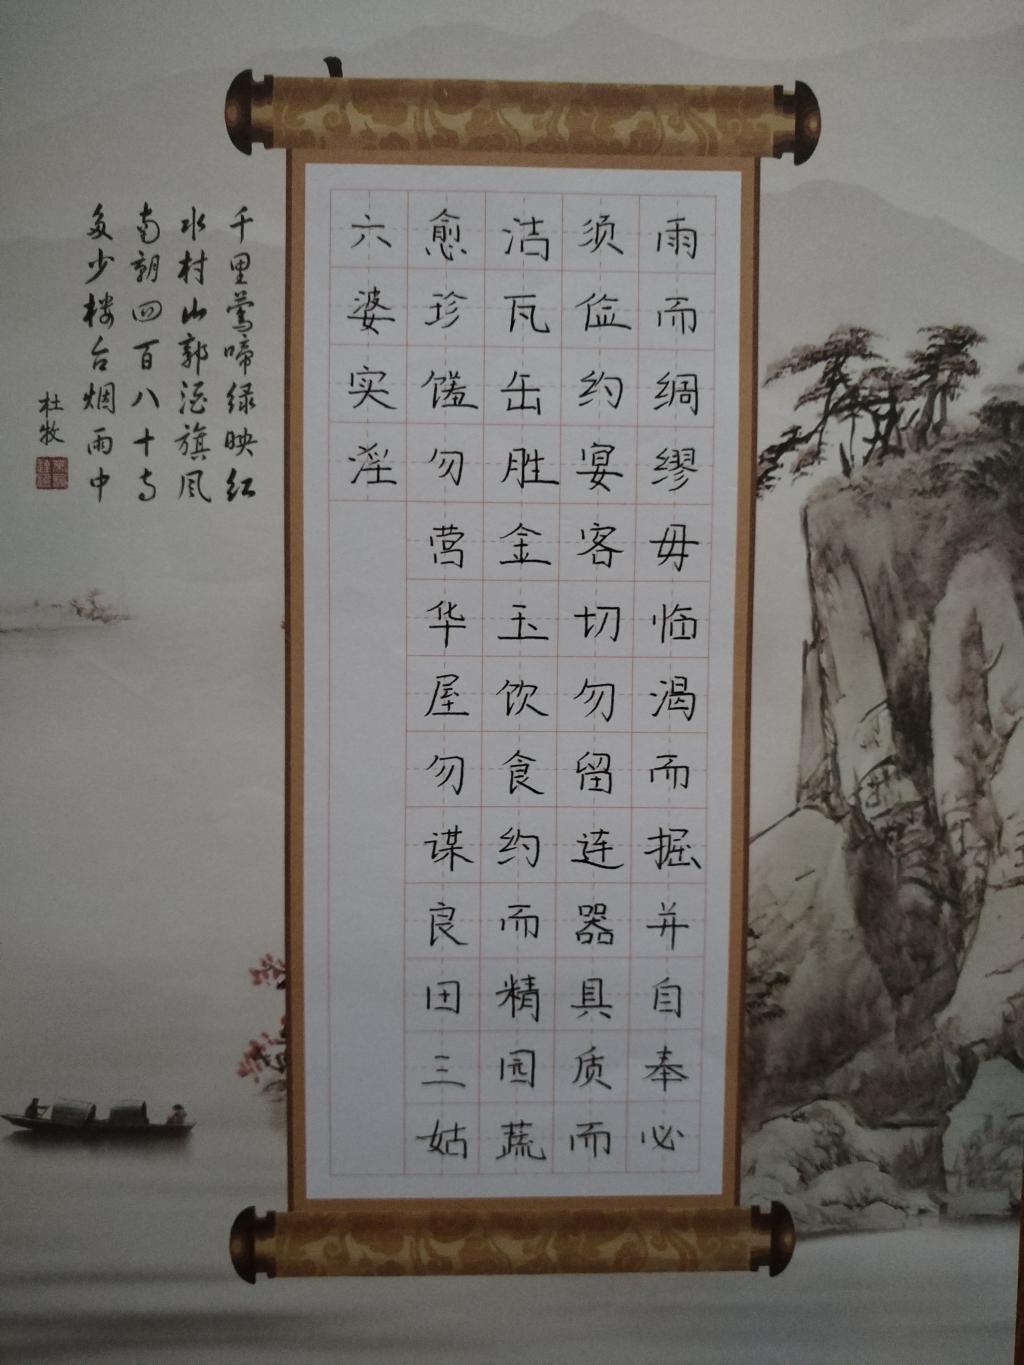 雨而绸缪毋临渴而掘并自奉必
须俭约宴客切勿留连器具质而
洁瓦缶胜金玉饮食约而精园蔬
愈珍馐勿营华屋勿谋良田三姑
六婆实淫
千里莺啼绿映红
水村山郭酒旗风
南朝四百八十寺
多少楼台烟雨中
杜牧